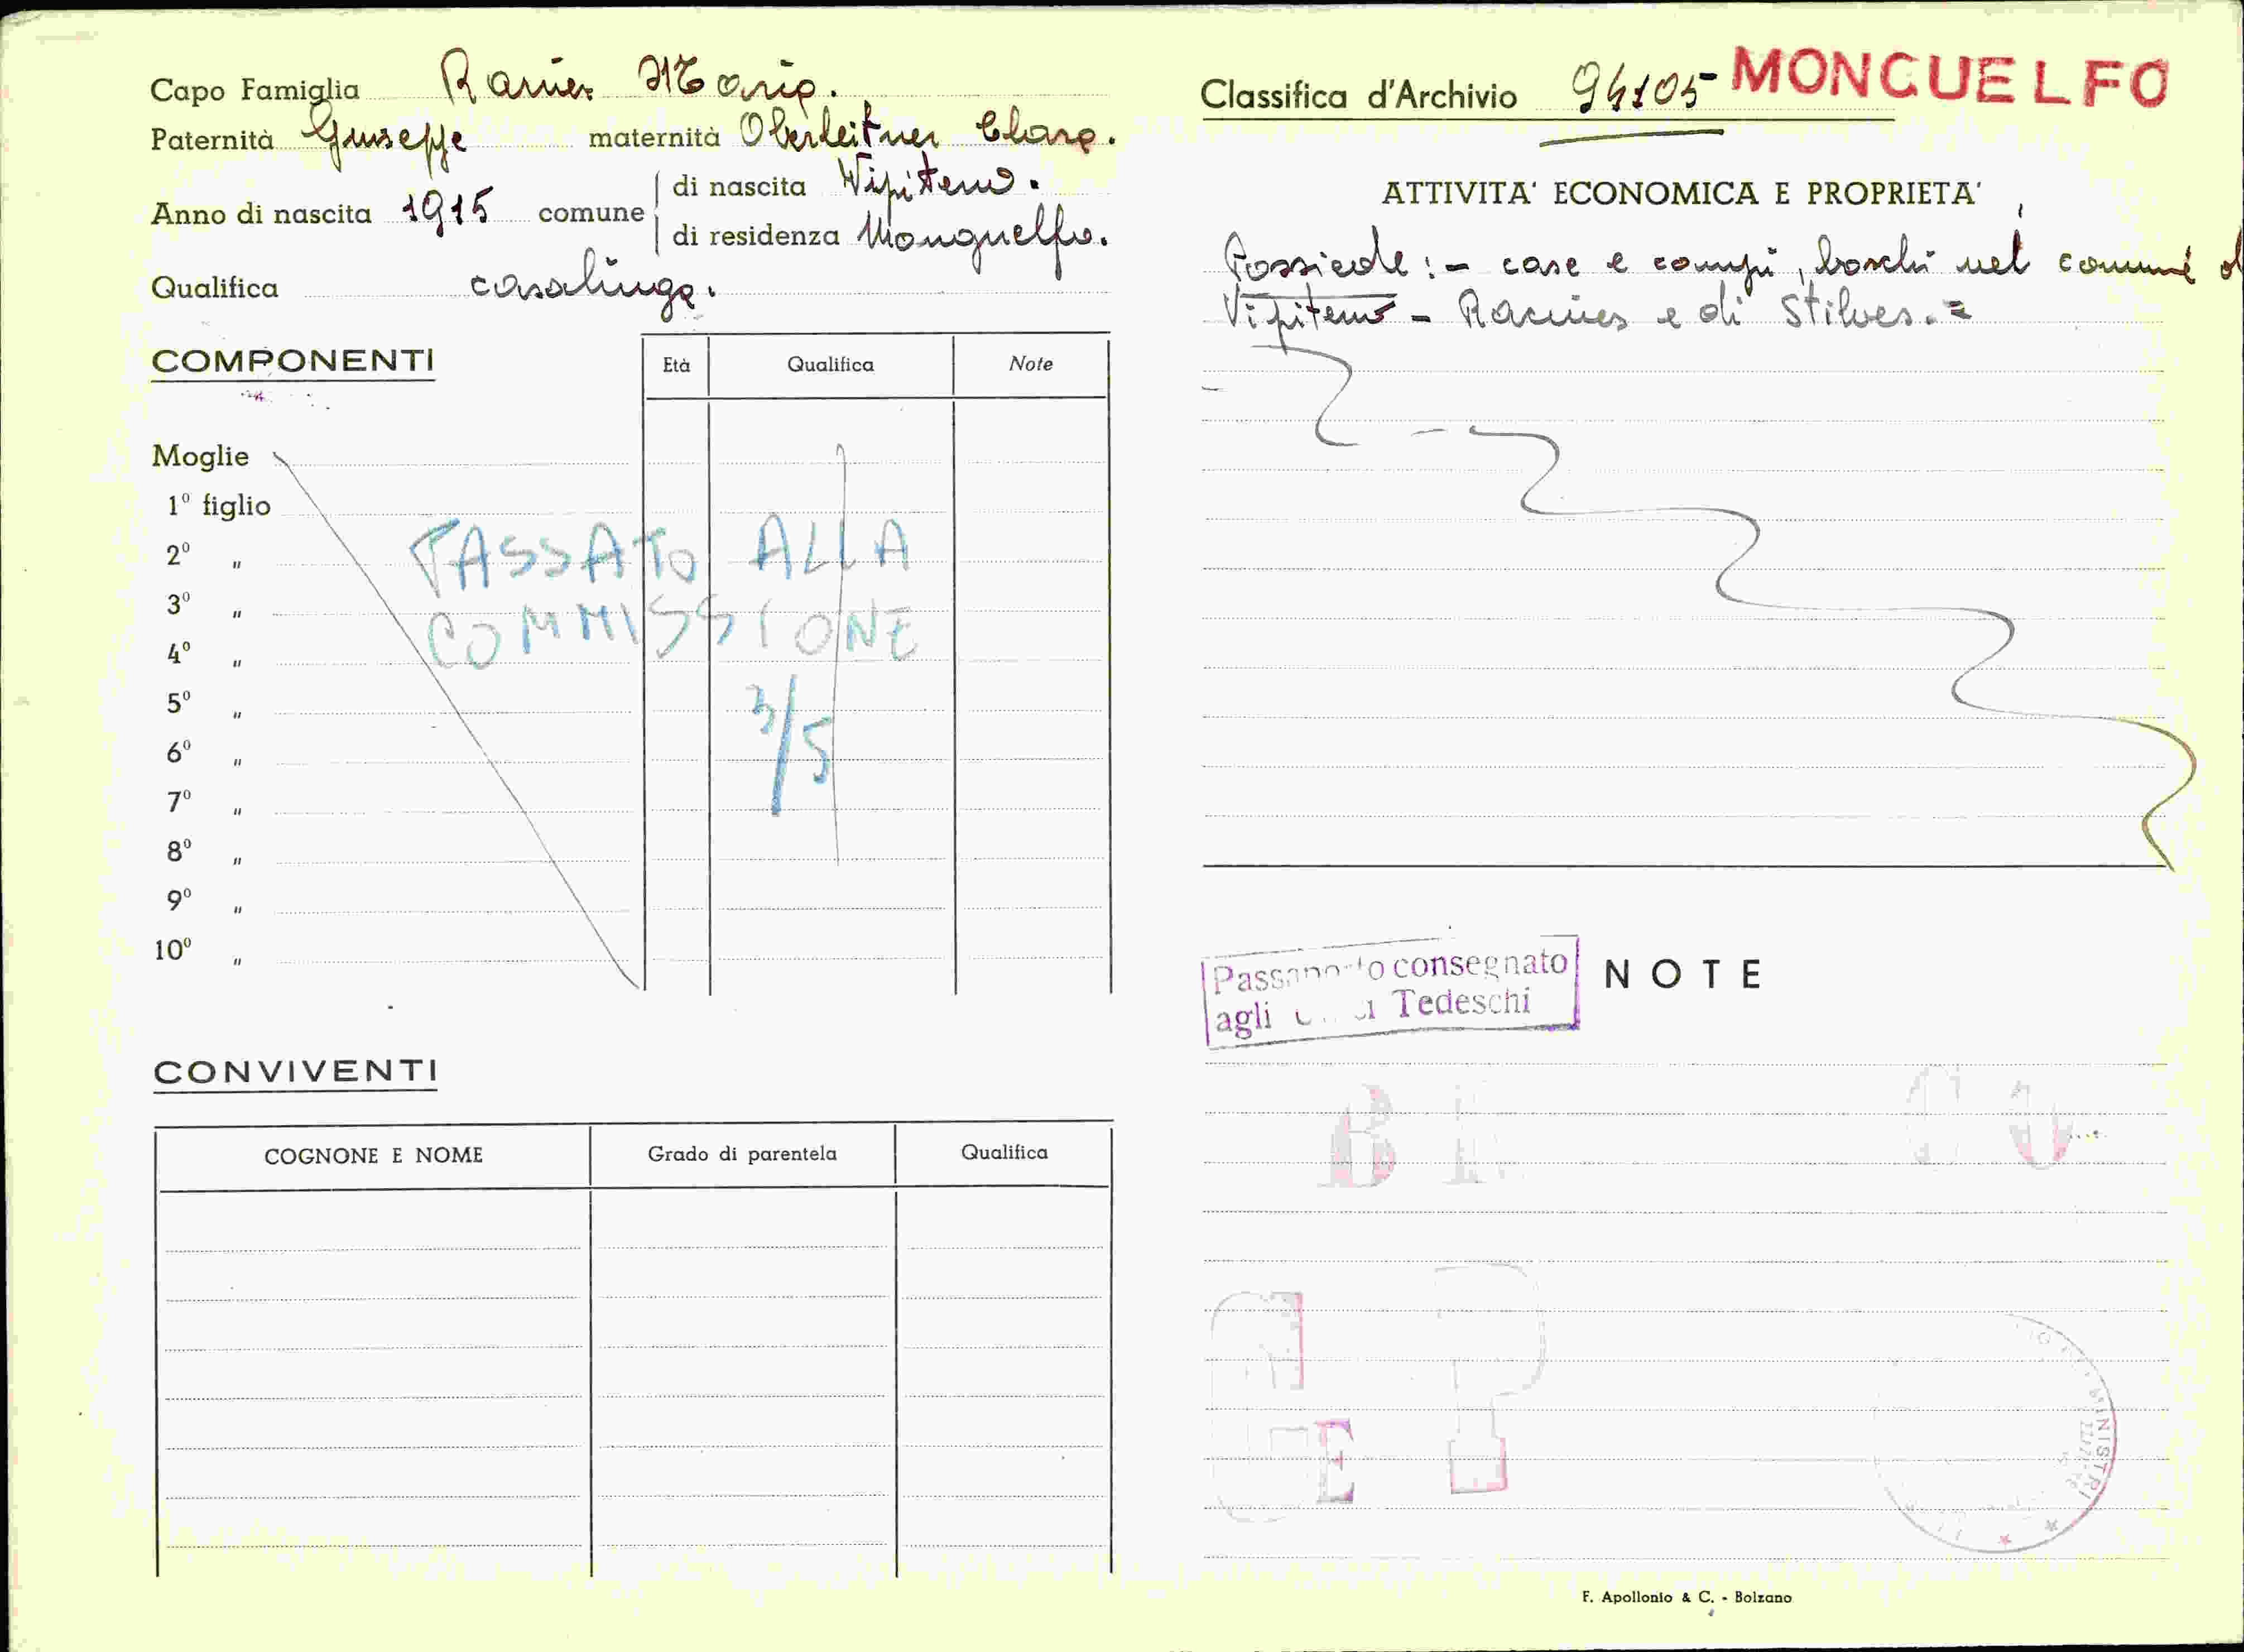 Capo Famiglia Ranier Maria.
Paternità Giuseppe maternità Oberleitner Clara.
Anno di nascita 1915 comune di nascita Vipiteno.
di residenza Monguelfo.
Qualifica casalinga.
COMPONENTI Età Qualifica Note
Moglie
1º figlio
2º "
3º "
4º "
5º "
6º "
7º "
8º "
9º "
10º "
PASSATO ALLA
COMMISSIONE
3/5
CONVIVENTI
COGNONE E NOME Grado di parentela Qualifica
Classifica d'Archivio 94105 MONGUELFO
ATTIVITA' ECONOMICA E PROPRIETA'
Possiede :- case e campi, boschi nel comune
Vipiteno - Racines e di Stilves. =
Passaporto consegnato
agli Tedeschi
NOTE
E
MINISTRI
F. Apollonio & C. - Bolzano